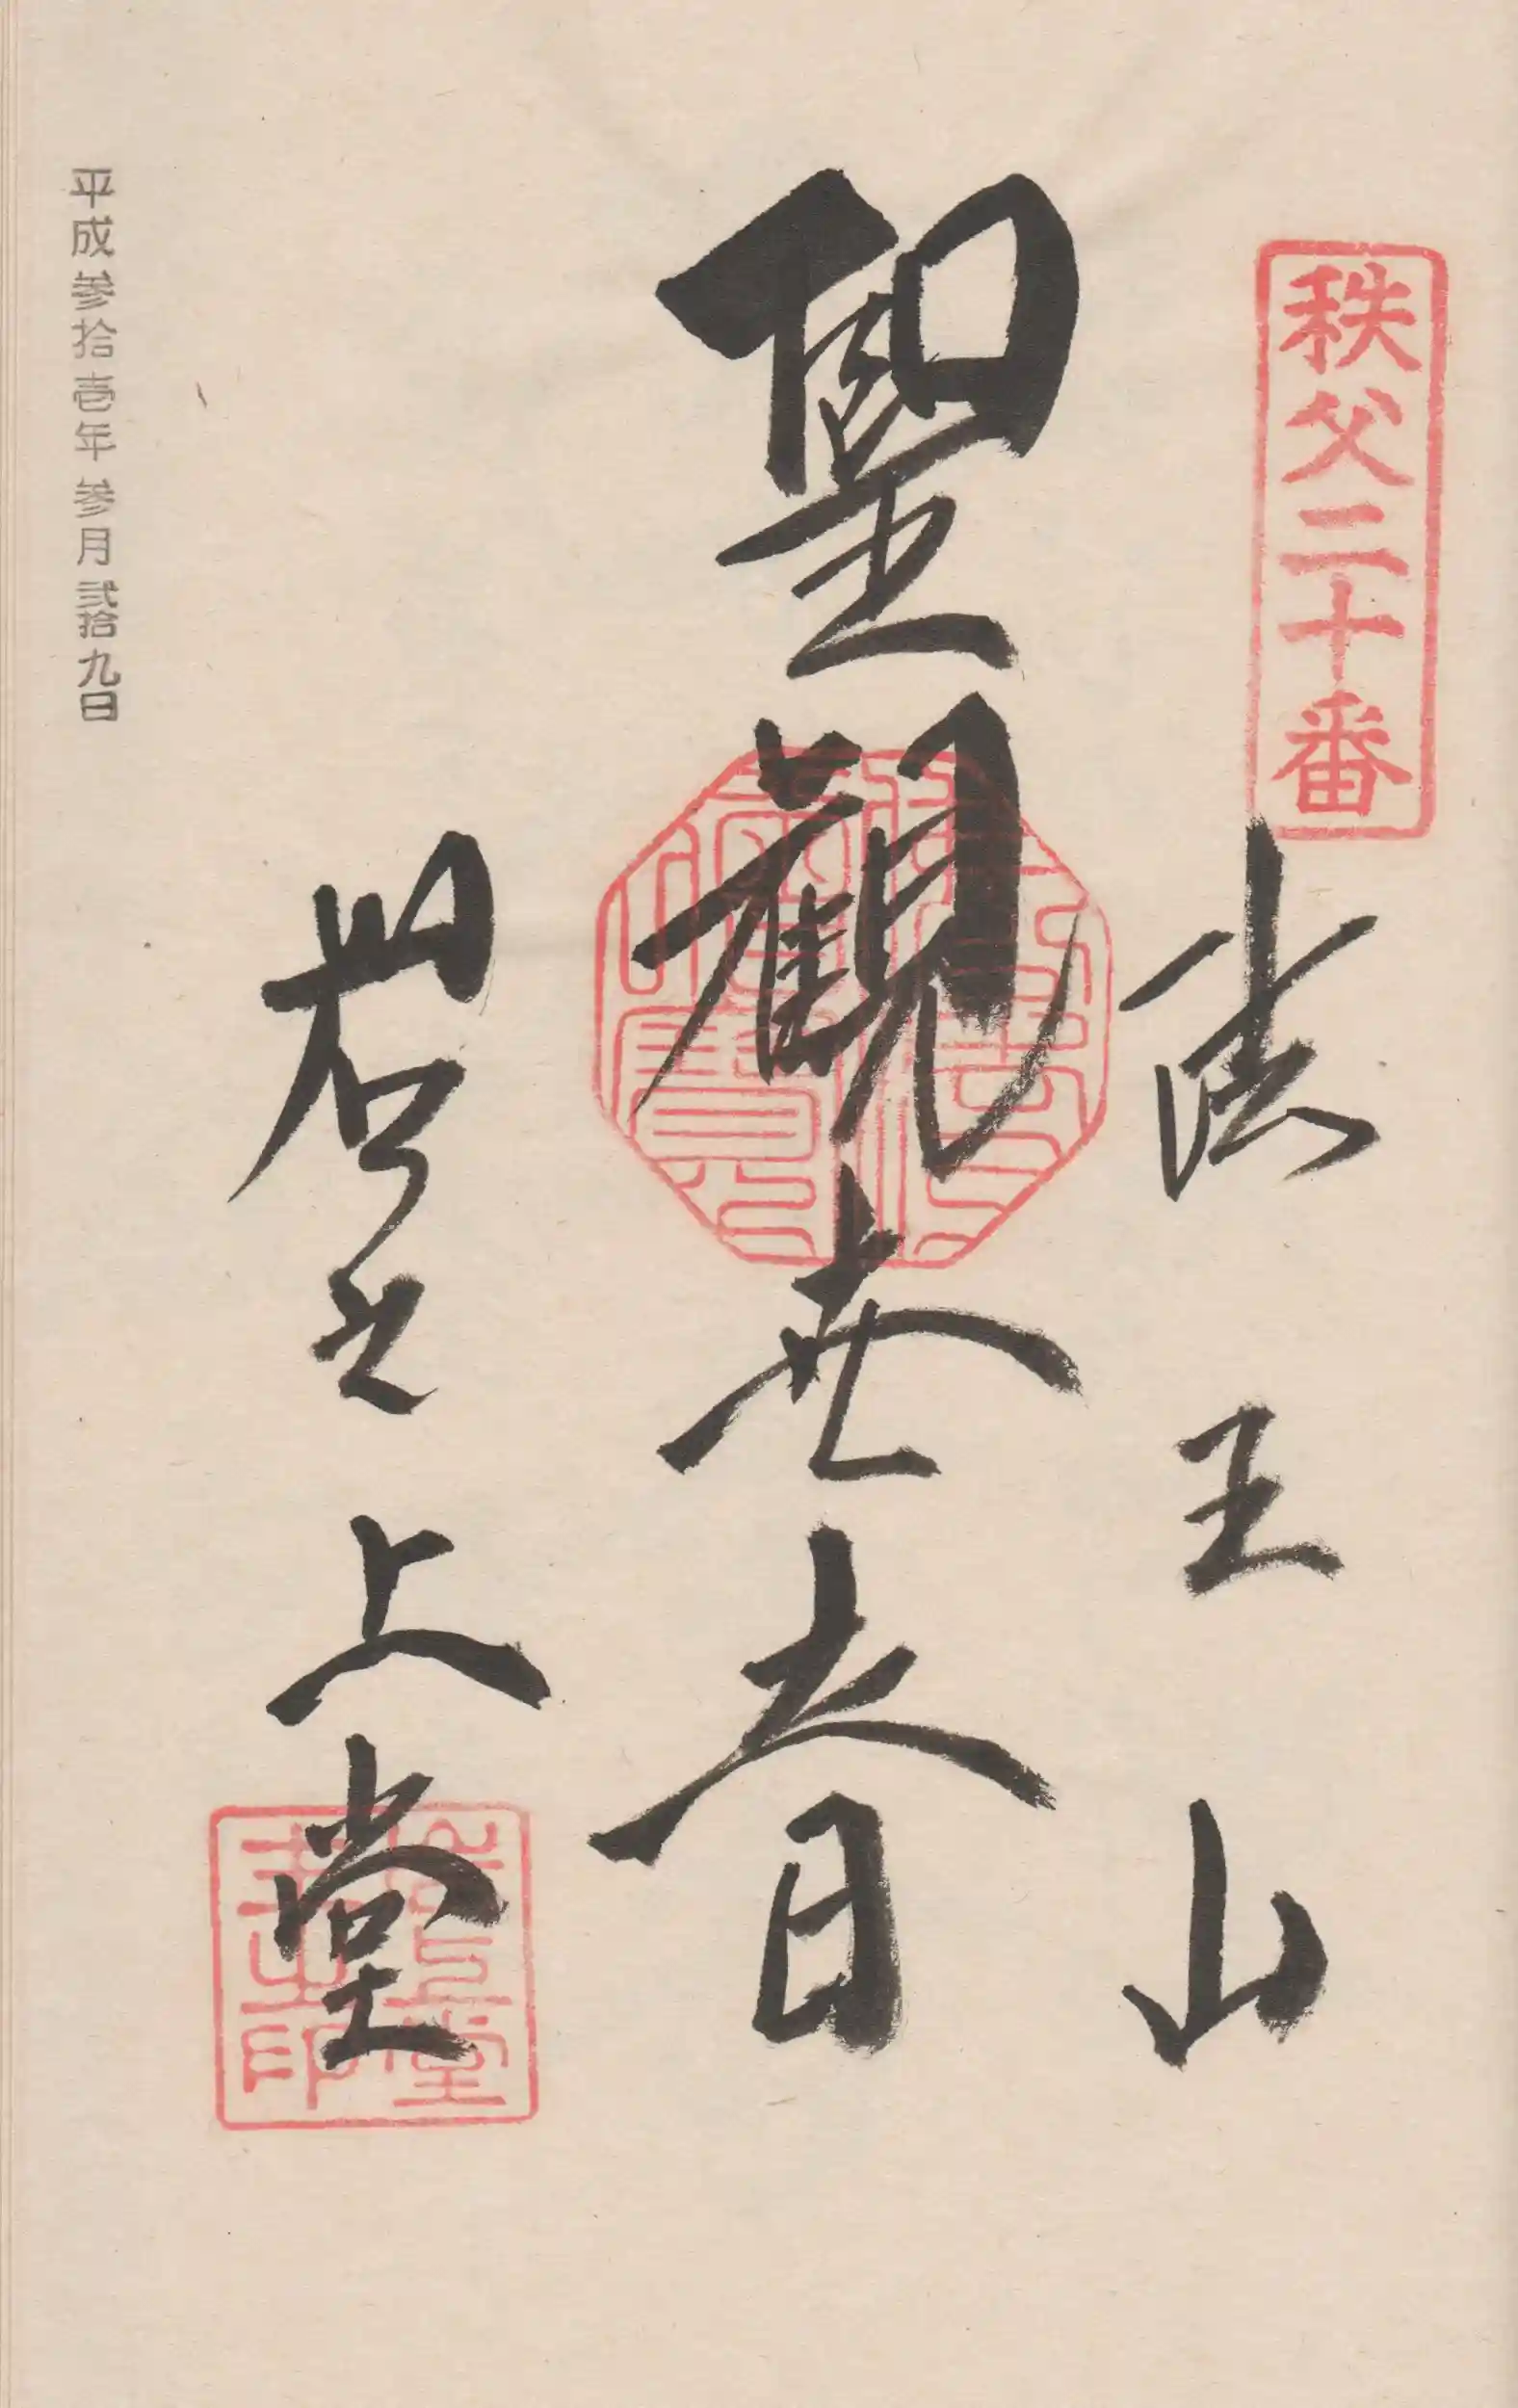 秩父二十番
法王山
聖観世音
岩之上堂
平成参拾壱年参月弐拾九日